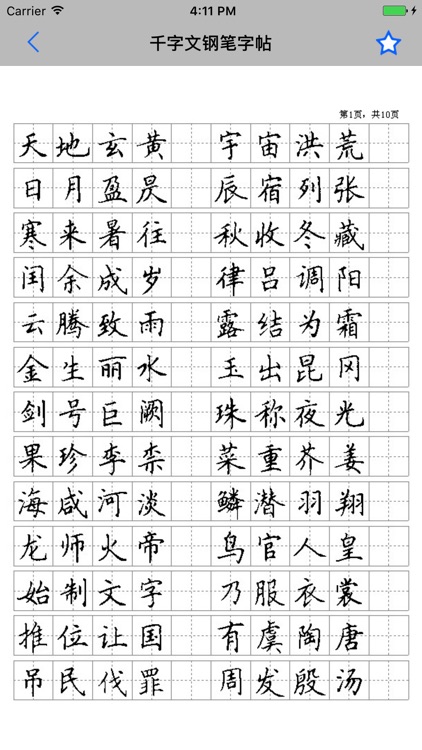 Carrier 4:11 PM
千字文钢笔字帖
第1页，共10页
天地玄黄 宇宙洪荒
日月盈昃 辰宿列张
寒来暑往 秋收冬藏
闰余成岁 律吕调阳
云腾致雨 露结为霜
金生丽水 玉出昆冈
剑号巨阙 珠称夜光
果珍李柰 菜重芥姜
海咸河淡 鳞潜羽翔
龙师火帝 鸟官人皇
始制文字 乃服衣裳
推位让国 有虞陶唐
吊民伐罪 周发殷汤